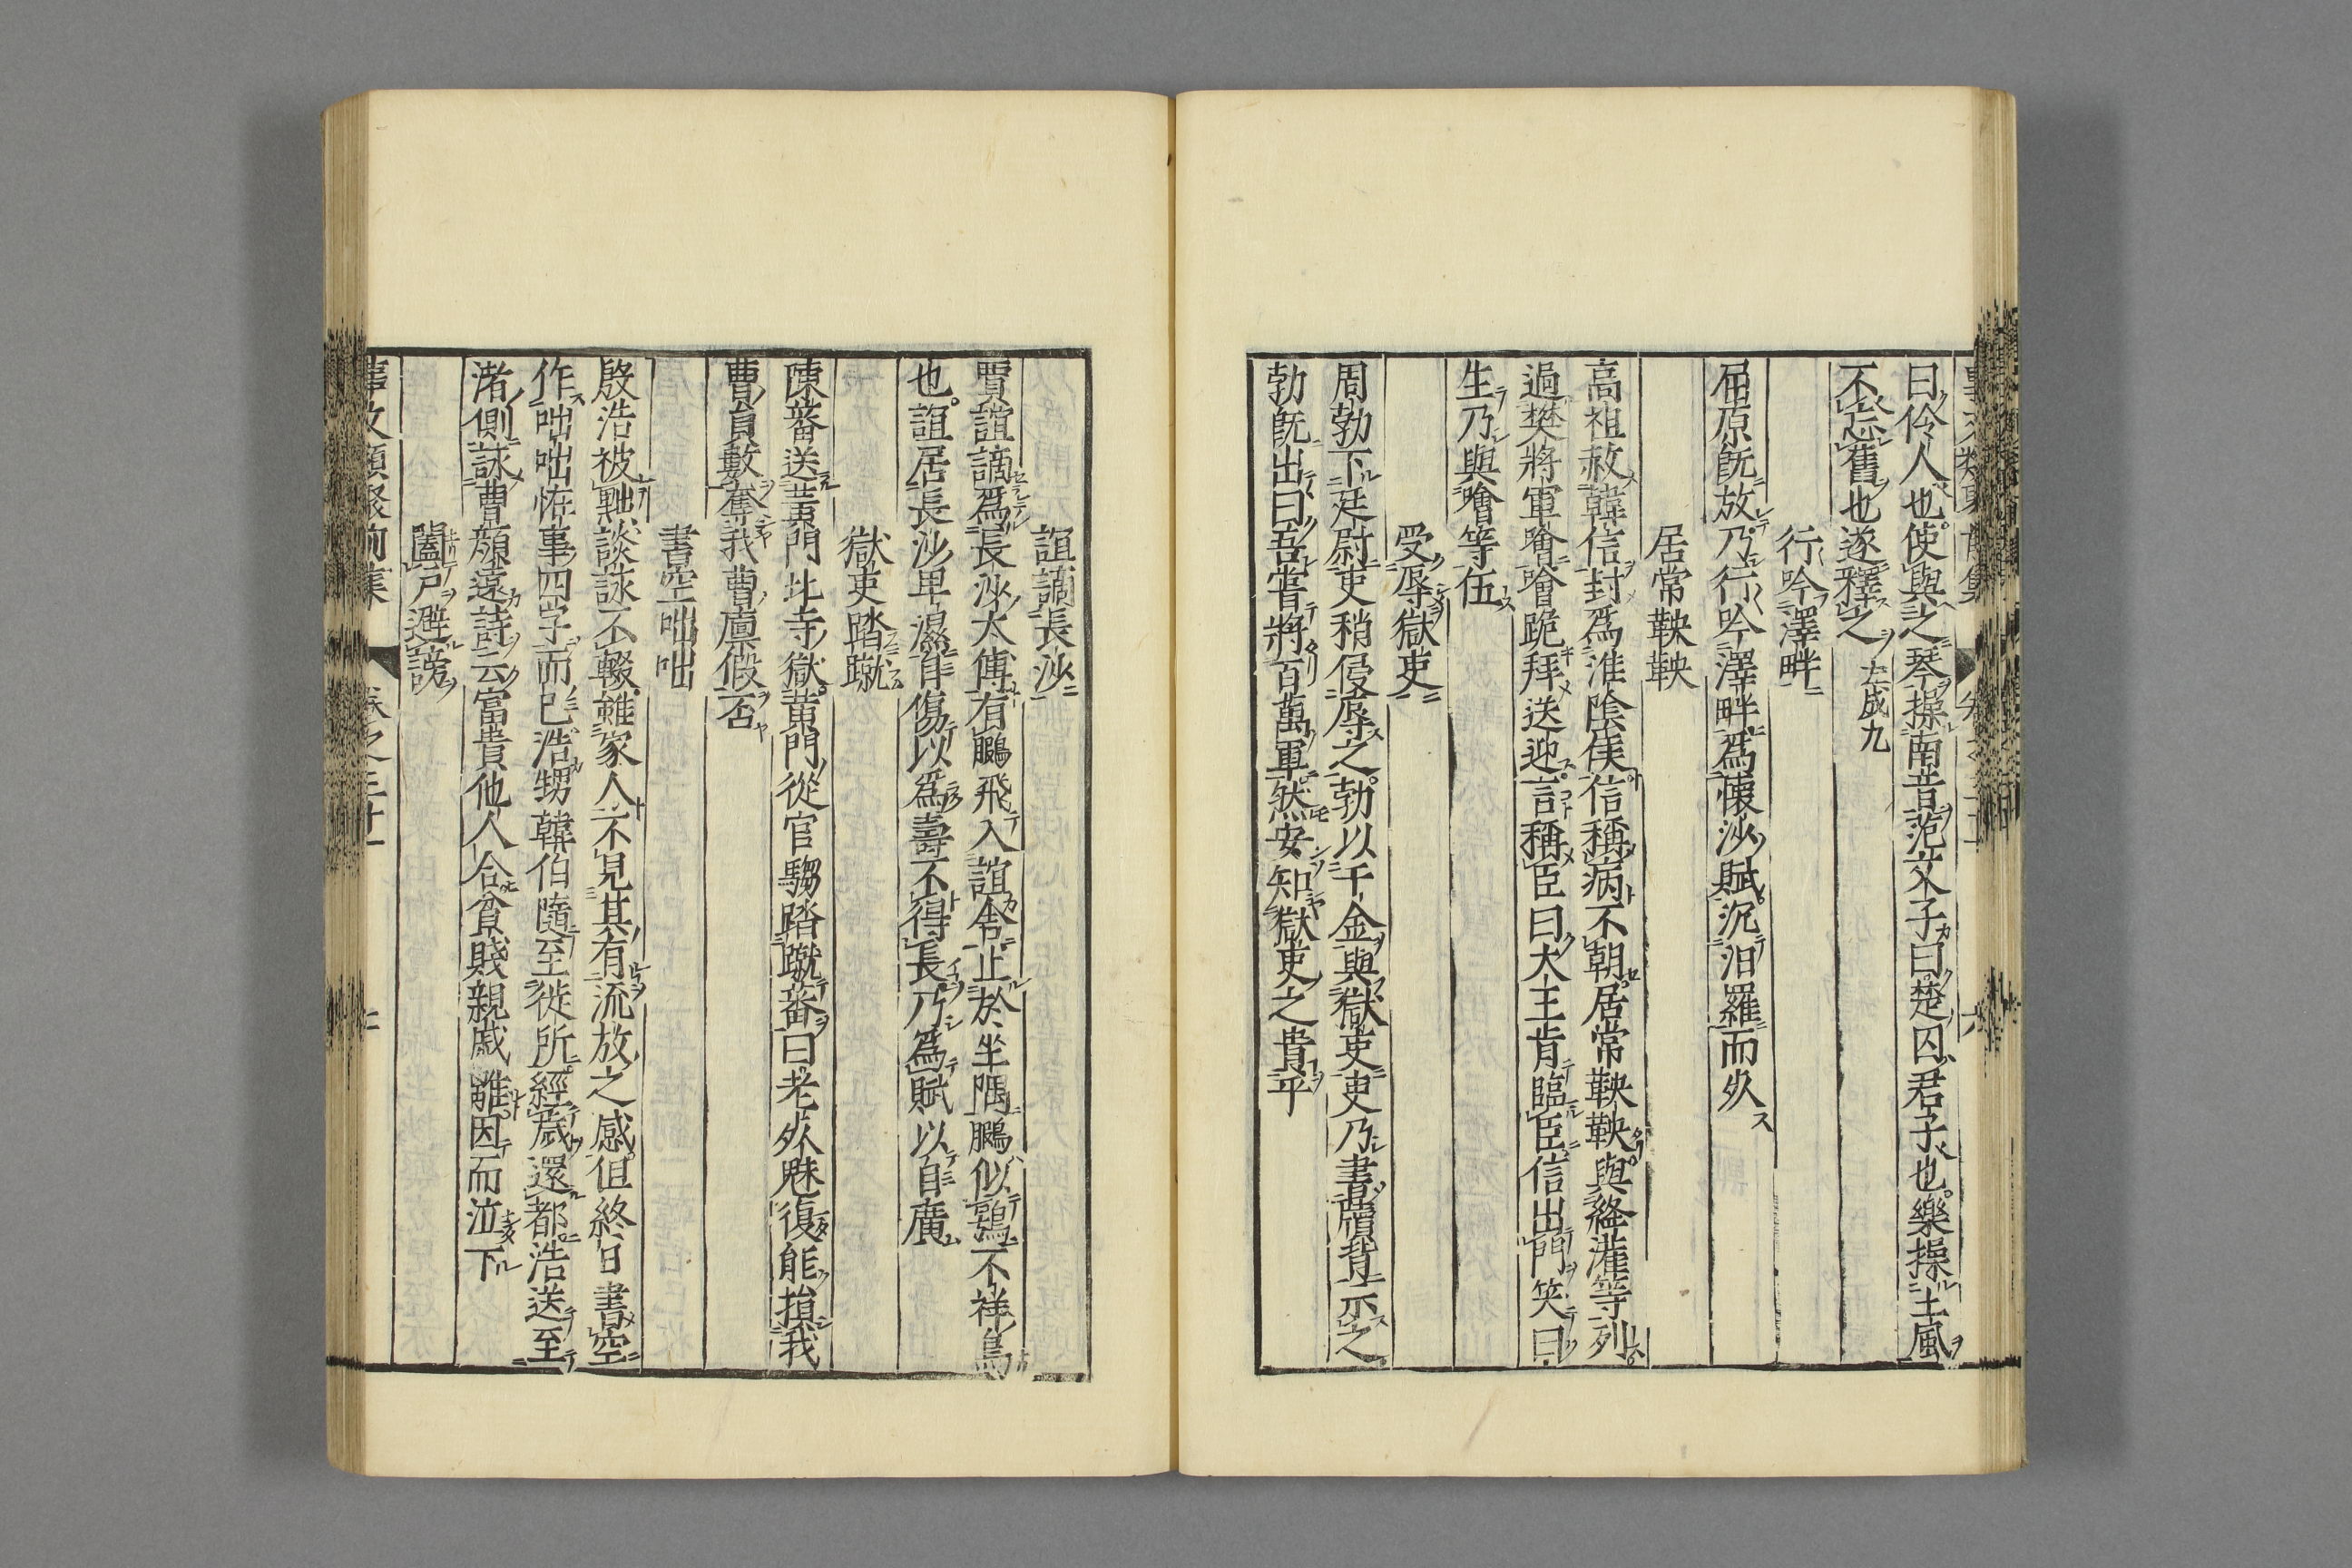 曰伶人也使與之琴操南音范文子曰楚囚君子也樂操土風
不忘舊也遂釋之 左成九
行吟澤畔
屈原既放乃行吟澤畔爲懷沙賦沉汨羅而死
居常鞅鞅
高祖赦韓信封爲淮陰侯信稱病不朝居常鞅鞅與絳灌等列
過樊將軍噲噲跪拜送迎言稱臣曰大王肯臨臣信出門笑曰
生乃與噲等伍
受辱獄吏
周勃下廷尉吏稍侵辱之勃以千金與獄吏吏乃書牘背示之
勃既出曰吾嘗將百萬軍然安知獄吏之貴乎
誼謫長沙
賈誼謫爲長沙太傅有鵩飛入誼舍止於坐隅鵩似鴞不祥鳥
也誼居長沙卑濕自傷以爲壽不得長乃爲賦以自廣
獄吏踏蹴
陳蕃送黄門北寺獄黄門從官騶踏蹴蕃曰老死魅復能損我
曹員數奪我曹廩假否
書空咄咄
殷浩被黜談詠不輟雖家人不見其有流放之感但終日書空
作咄咄怪事四字而已浩甥韓伯隨至徙所經歳還都浩送至
渚側詠曹顔遠詩云富貴他人合貧賤親戚離因而泣下
闔戸避謗
事文類聚前集 卷之三十一